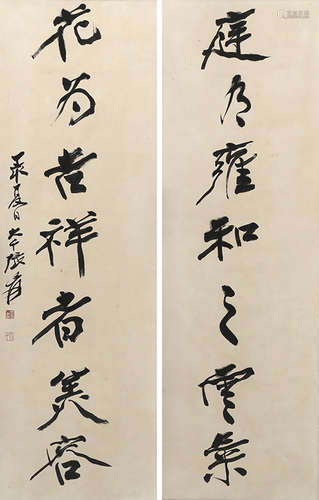 庭乃雍和之雲氣
花為吉祥者笑容
夏日 大千張爰